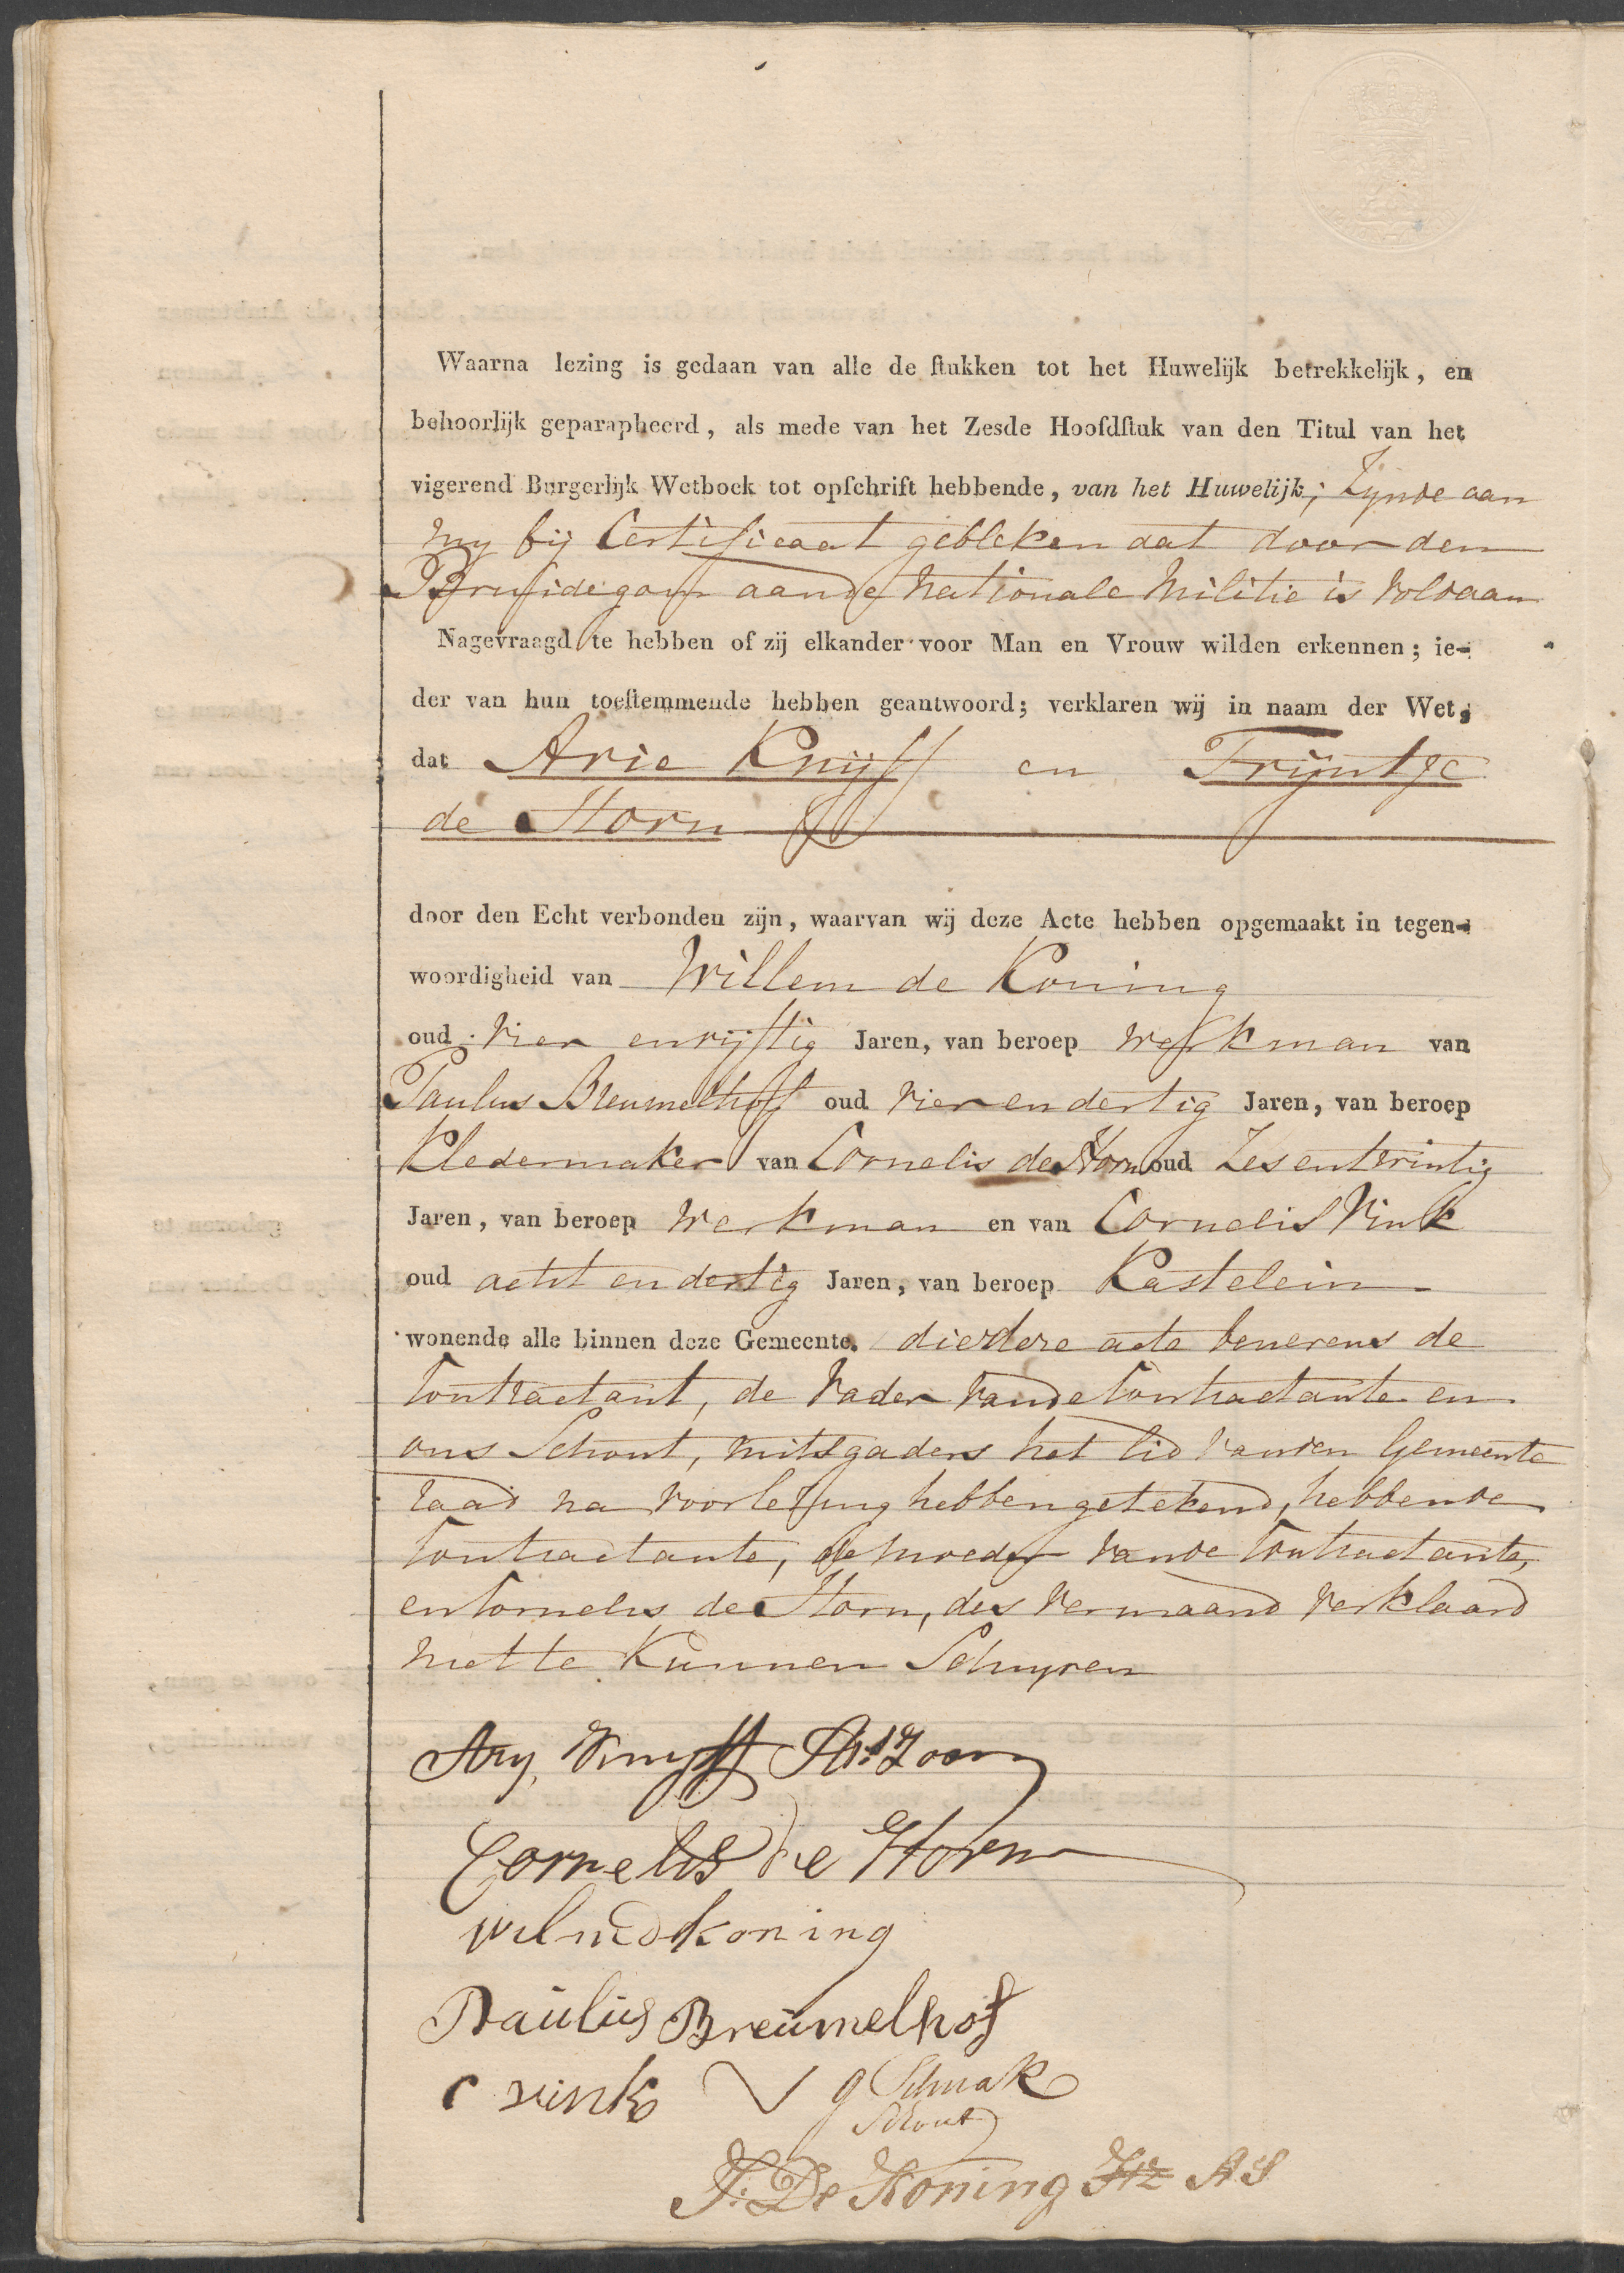 Waarna lezing is gedaan van alle de ſtukken tot het Huwelijk betrekkelijk, en
behoorlijk geparapheerd, als mede van het Zesde Hoofdſtuk van den Titul van het
vigerend Burgerlijk Wetboek tot opſchrift hebbende, van het Huwelijk; Zynde aan
my bij Certificaat gebleken dat door den
Bruidegom aan de Nationale Militie is voldaan
Nagevraagd te hebben of zij elkander voor Man en Vrouw wilden erkennen; ie-
der van hun toeſtemmende hebben geantwoord; verklaren wij in naam der Wet,
dat Arie Knijff en Trijntje
de Horn
door den Echt verbonden zijn, waarvan wij deze Acte hebben opgemaakt in tegen-
woordigheid van Willem de Koning
oud vier en vijftig Jaren, van beroep Werkman van
Paulus Breumelhoff oud vier en dertig Jaren, van beroep
Kledermaker van Cornelis de Horn oud Zes en twintig
Jaren, van beroep Werkman en van Cornelis Vink
oud acht en dertig Jaren, van beroep Kastelein
wonende alle binnen deze Gemeente. die dese acte benevens de
Contractant, de Vader van de Contractante en
ons Schout, mitsgaders het lid van den Gemeente
raad na voorlesing hebben getekend, hebbende
Contractante, de moeder van de Contractante,
en Cornelis de Horn, des vermaand verklaard
niet te kunnen Schryven
Ary Knyff Zoon
Cornelis de Horn
wilm d koning
Paulus Breumelhof
C vink G Schrak
Schout
J: De Koning Hz AS